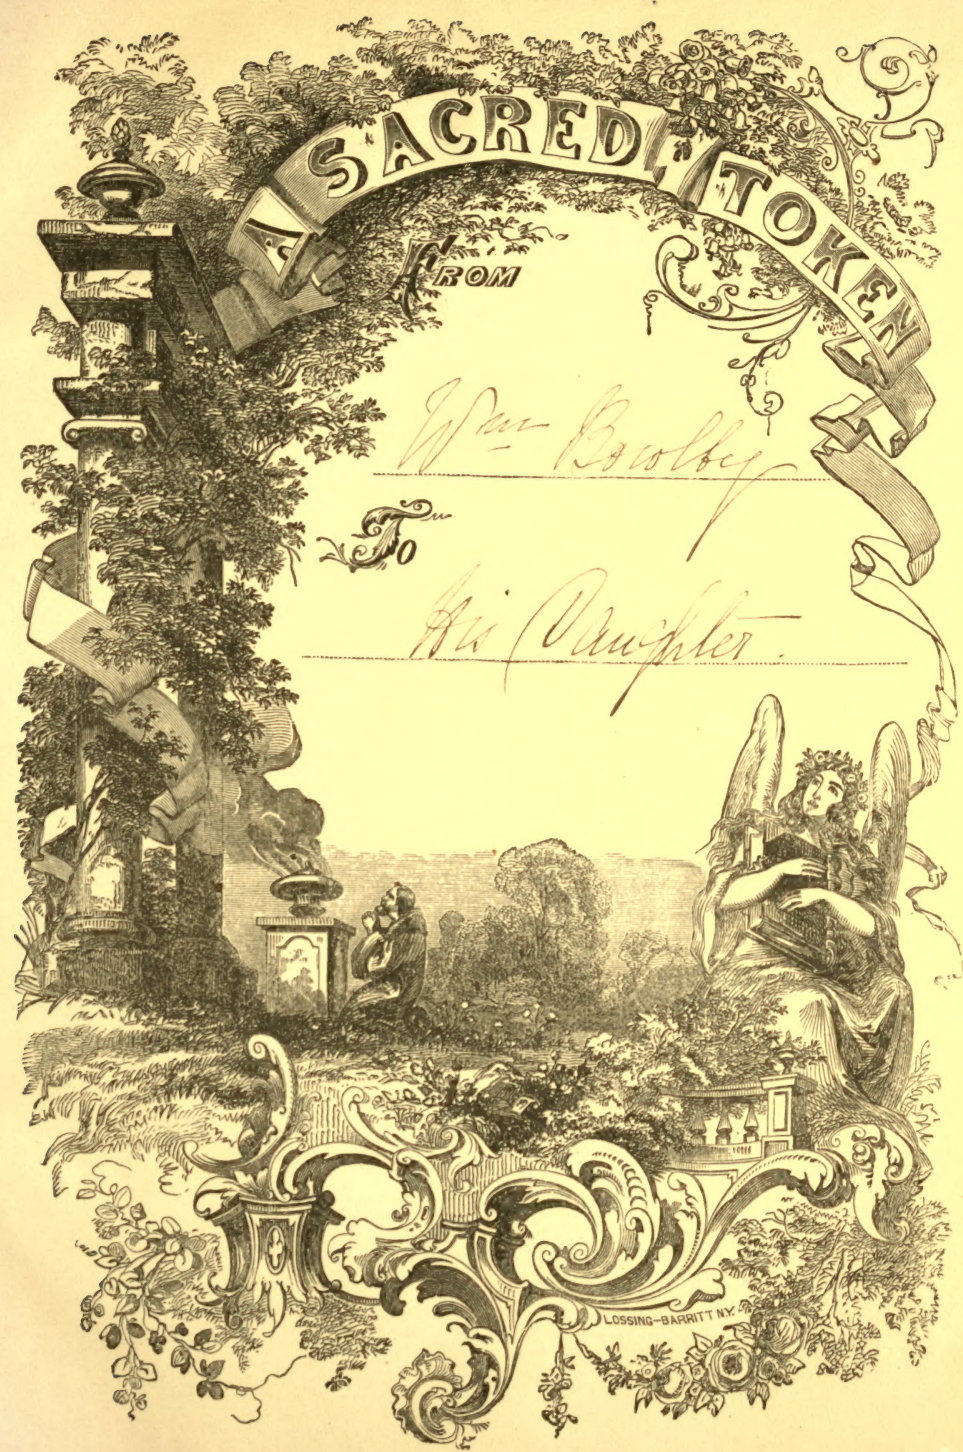 A SACRED TOKEN
FROM
Wm Bowlby
To
His Daughter.
LOSSING-BARRITT N.Y.